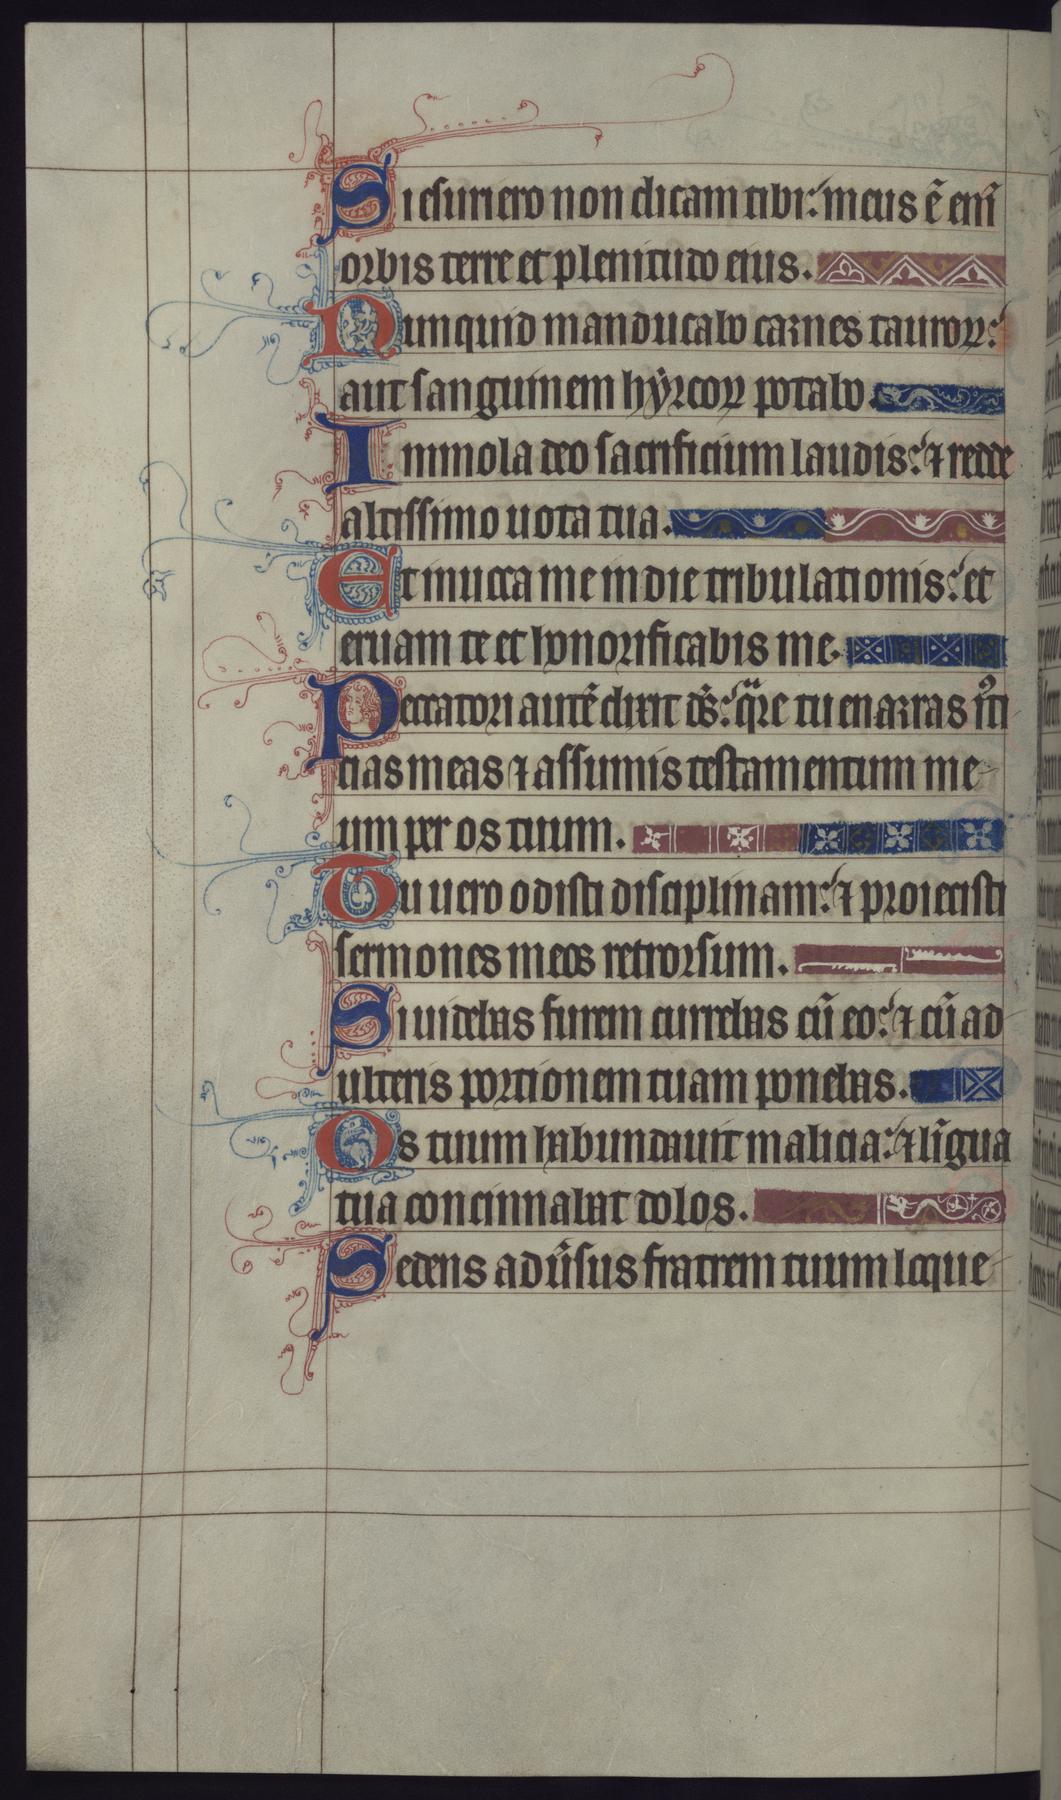 Si esuriero non dicam tibi: meus ē eni͞
orbis terre et plenitudo eius.
Nunquid manducabo carnes tauroꝝ:
aut sanguinem hyrcoꝝ potabo.
Immola deo sacrificium laudis: ⁊ redde
altissimo uota tua.
Et inuoca me in die tribulationis: et
eruam te et honorificabis me.
Peccatori autē dixit ds̄: qᷓre tu enarras iᷤti
cias meas ⁊ assumis testamentum me
um per os tuum.
Tu uero odisti disciplinam: ⁊ proiecisti
sermones meos retrorsum.
Si uidebas furem currebas cū eo: ⁊ cū ad
ulteris portionem tuam ponebas.
Os tuum habundauit malicia: ⁊ lingua
tua concinnabat dolos.
Sedens adūsus fratrem tuum loque